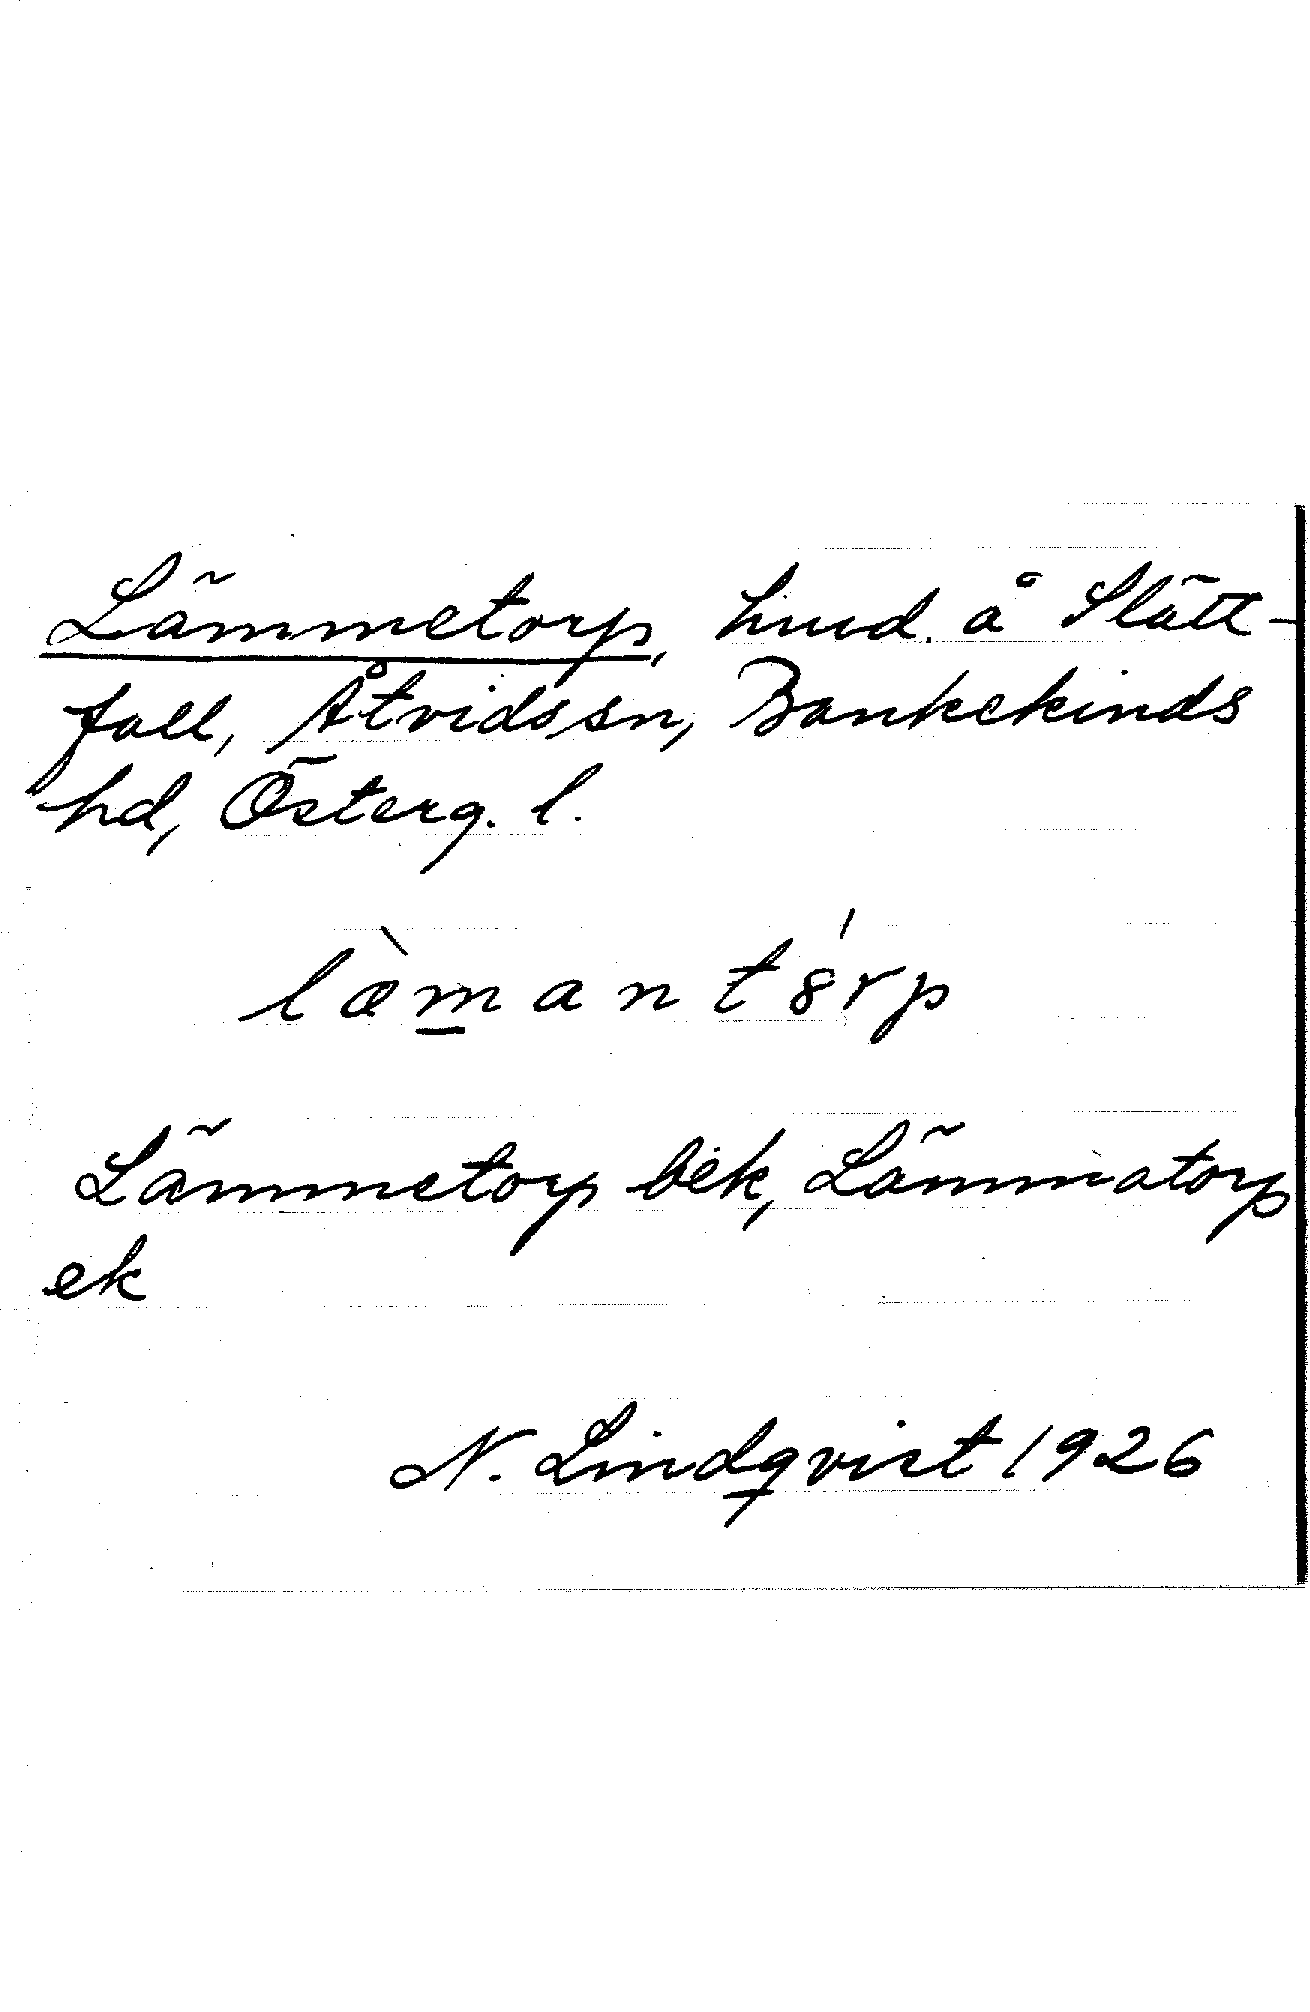 Lämmetorp, hmd. å Slätt-
fall, Åtvids sn, Bankekinds
hd, Österg. l.
læ̀mantȣ́rp
Lämmetorp bek, Lämmatorp
ek
N. Lindqvist 1926